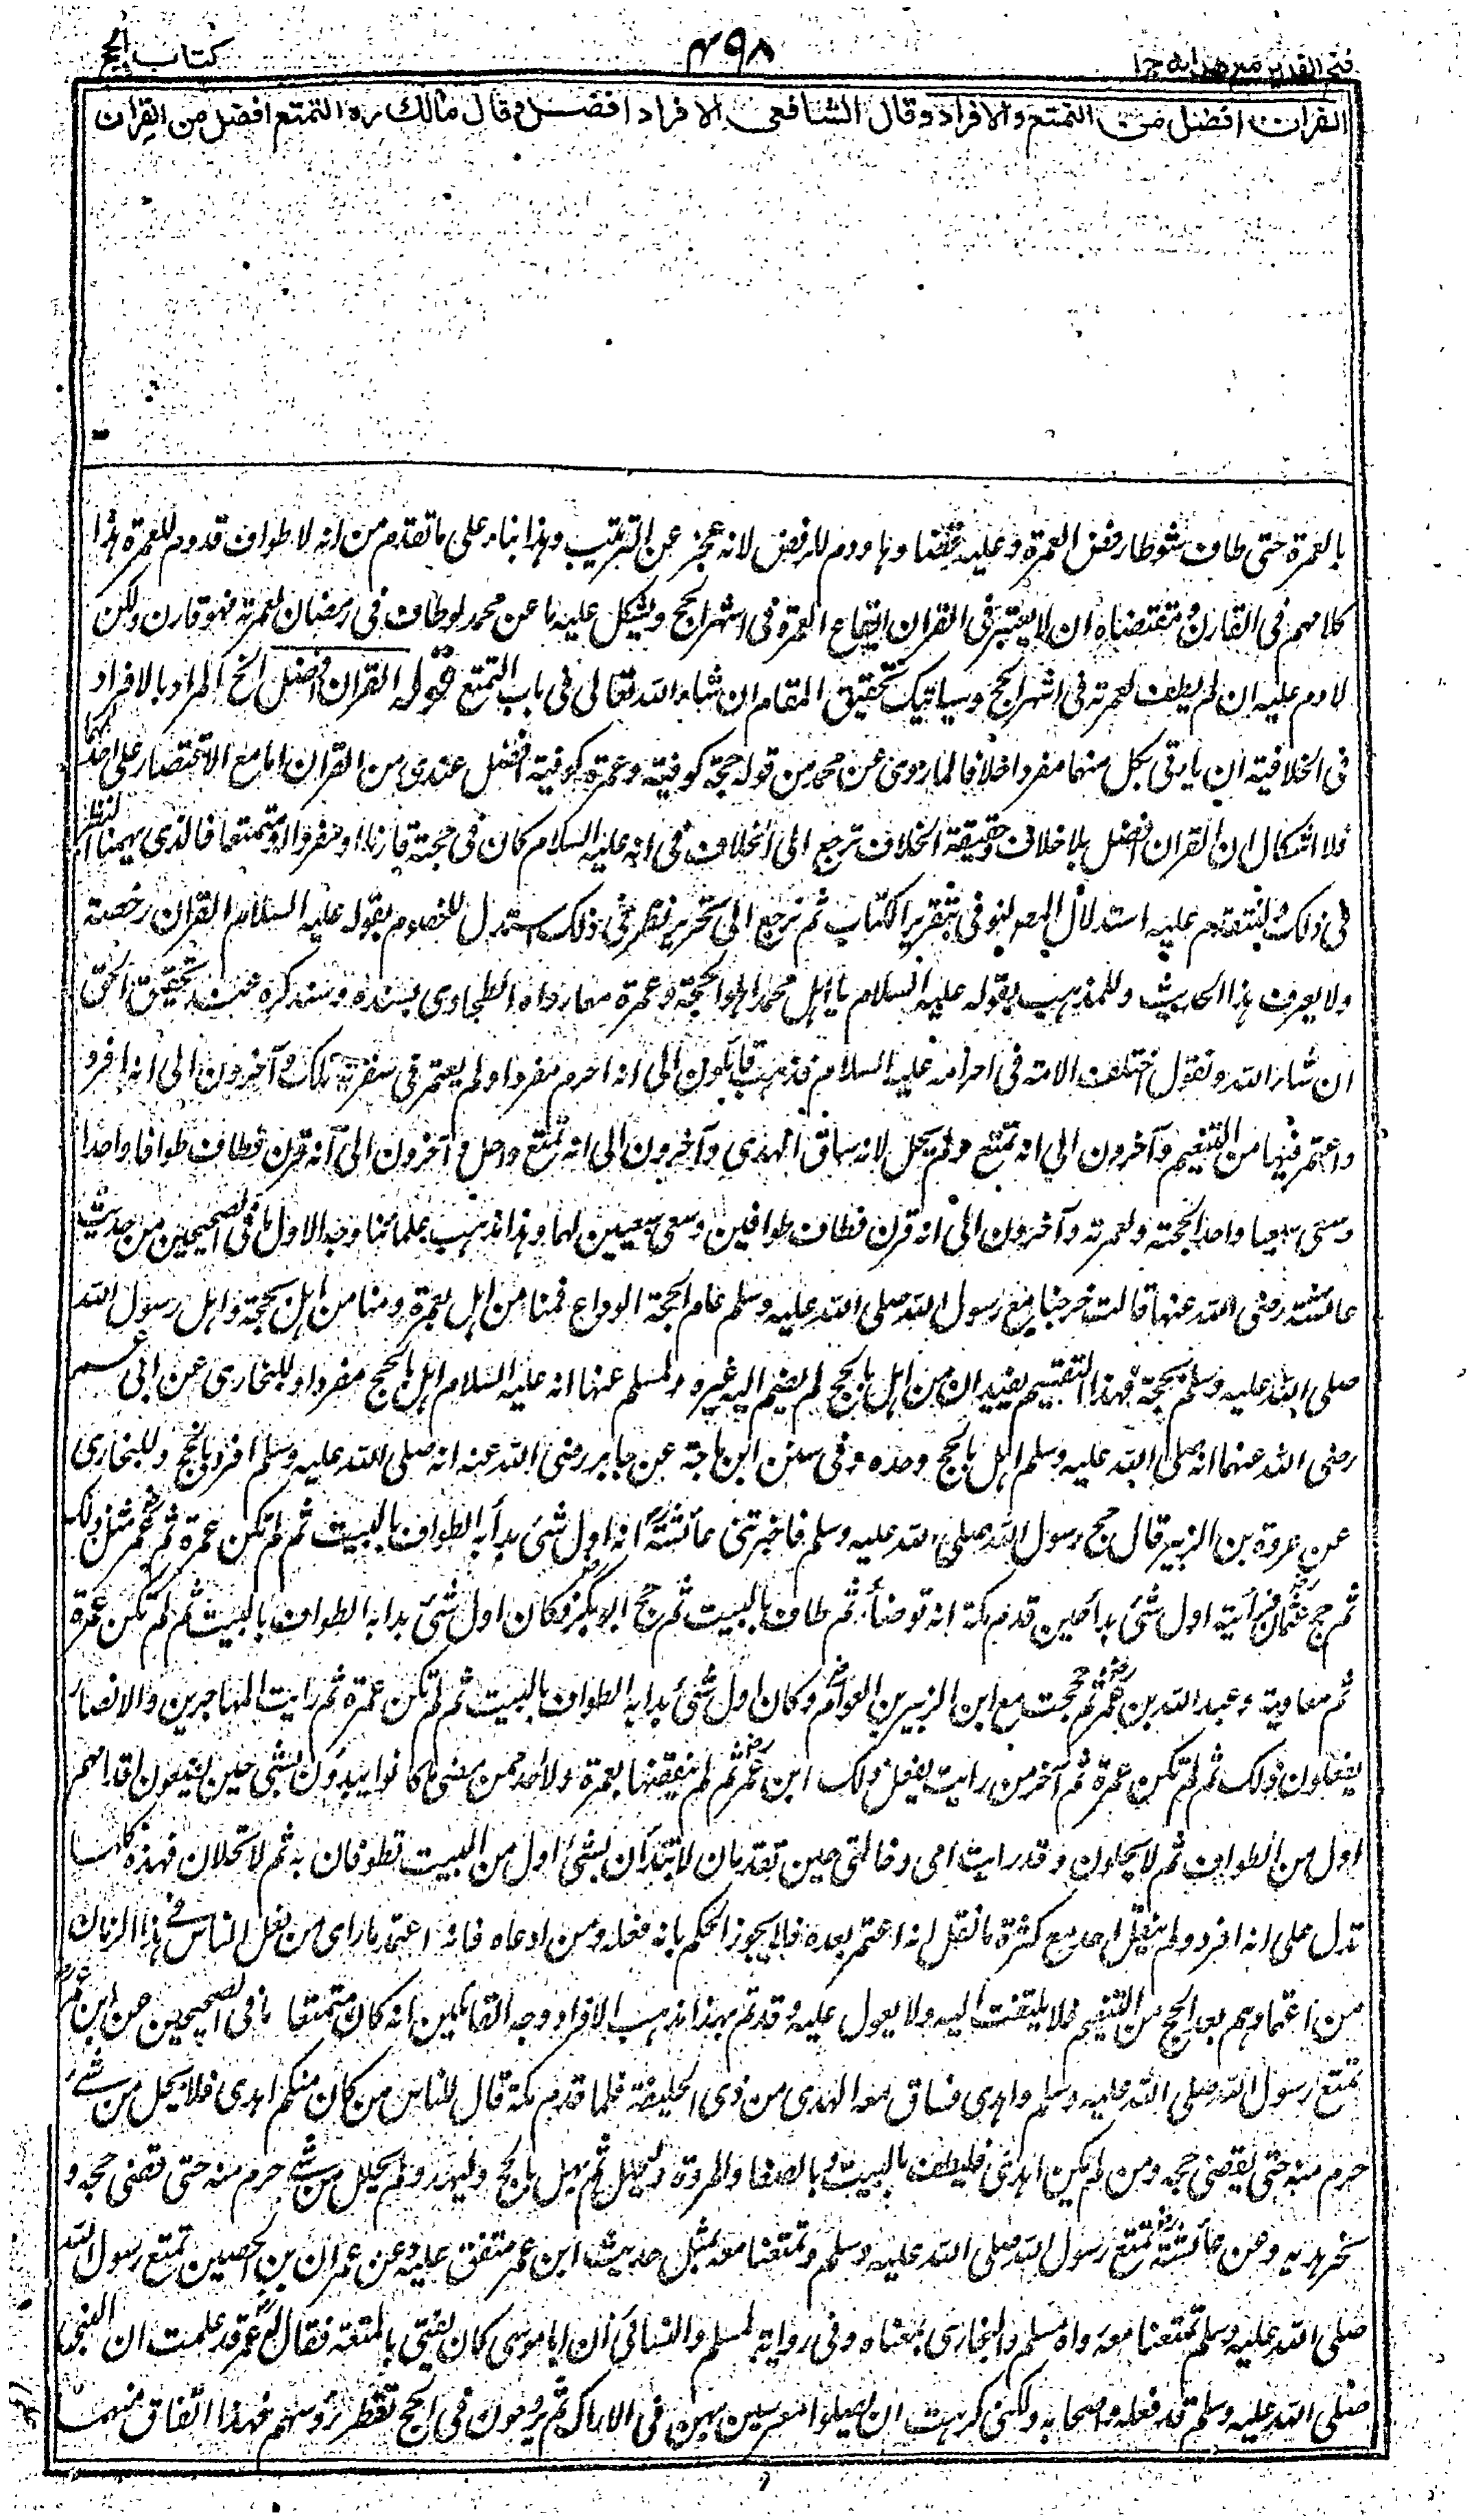 فتح القدير مع هدايه ج ١
٤٩٨
كتاب الحج
القران افضل من التمتع والافراد وقال الشافعى الافراد افضل وقال مالك ره التمتع افضل من القران
بالعمرة حتى طاف شوطا رفض العمرة وعليه قضاؤها ودم للرفض لانه عجز عن الترتيب وهذا بناء على ما تقدم من انه لا طواف قدوم للعمرة هذا
كلامهم فى القارن ومقتضاه ان لا يعتبر فى القران ايقاع العمرة فى اشهر الحج ويشكل عليه ما عن محمد لو طاف فى رمضان لعمرته فهو قارن ولكن
لا دم عليه ان لم يطف لعمرته فى اشهر الحج وسياتيك تحقيق المقام ان شاء الله تعالى فى باب التمتع قوله القران افضل الخ المراد بالافراد
فى الخلافية ان ياتى بكل منهما مفردا خلافا لما روى عن محمد من قوله حجة كوفية وعمرة كوفية افضل عندى من القران اما مع الاقتصار على احدهما
فلا اشكال ان القران افضل بلا خلاف وحقيقة الخلاف ترجع الى الخلاف فى انه عليه السلام كان فى حجته قارنا او مفردا او متمتعا فالذى يهمنا النظر
فى ذلك ولنقدم عليه استدلال المص لنوفى بتقرير الكتاب ثم نرجع الى تحرير النظر فى ذلك استدل للخصوم بقوله عليه السلام القران رخصة
ولا يعرف هذا الحديث وللمذهب بقوله عليه السلام يا اهل محمد اهلوا بحجة وعمرة معا رواه الطحاوى بسنده وسنذكره عند تحقيق الحق
ان شاء الله ونقول اختلف الامة فى احرامه عليه السلام فذهب قائلون الى انه احرم مفردا ولم يعتمر فى سفرته تلك وآخرون الى انه افرد
واعتمر فيها من التنعيم وآخرون الى انه تمتع ولم يحل لانه ساق الهدى وآخرون الى انه تمتع وحل وآخرون الى انه قرن فطاف طوافا واحدا
وسعى سعيا واحدا لحجته ولعمرته وآخرون الى انه قرن فطاف طوافين وسعى سعيين لهما وهذا مذهب علمائنا وجه الاول ما فى الصحيحين من حديث
عائشة رضى الله عنها قالت خرجنا مع رسول الله صلى الله عليه وسلم عام حجة الوداع فمنا من اهل بعمرة ومنا من اهل بحجة واهل رسول الله
صلى الله عليه وسلم بحجة فهذا التقسيم يفيد ان من اهل بالحج لم يضم اليه غيره ولمسلم عنها انه عليه السلام اهل بالحج مفردا وللبخارى عن ابى عمر
رضى الله عنهما انه صلى الله عليه وسلم اهل بالحج وحده وفى سنن ابن ماجة عن جابر رضى الله عنه انه صلى الله عليه وسلم افرد بالحج وللبخارى
عن عروة بن الزبير قال حج رسول الله صلى الله عليه وسلم فاخبرتنى عائشة انه اول شئ بدأ به الطواف بالبيت ثم لم تكن عمرة ثم عمر مثل ذلك
ثم حج عثمان فرأيته اول شئ بدأ حين قدم مكة انه توضأ ثم طاف بالبيت ثم حج ابو بكر فكان اول شئ بدا به الطواف بالبيت ثم لم تكن عمرة
ثم معاوية وعبد الله بن عمر ثم حججت مع ابن الزبير بن العوام وكان اول شئ بدا به الطواف بالبيت ثم لم تكن عمرة ثم رايت المهاجرين والانصار
يفعلون ذلك ثم لم تكن عمرة ثم آخر من رايت يفعل ذلك ابن عمر ثم لم ينقضها بعمرة ولا احد ممن مضى ما كانوا يبدون بشئ حين يضعون اقدامهم
اول من الطواف ثم لا يحلون وقد رايت امى وخالتى حين تقدمان لا تبتدآن بشئ اول من البيت تطوفان به ثم لا تحلان فهذه كلها
تدل على انه افرد ولم ينقل احد مع كثرة ما نقل انه اعتمر بعده فلا يجوز الحكم بانه فعله ومن ادعاه فانه اعتمد ما راى من فعل الناس فى هذا الزمان
من اعتمارهم بعد الحج من التنعيم فلا يلتفت اليه ولا يعول عليه وقد تم بهذا مذهب الافراد وجه القائلين انه كان متمتعا ما فى الصحيحين عن ابن عمر
تمتع رسول الله صلى الله عليه وسلم واهدى فساق معه الهدى من ذى الحليفة فلما قدم مكة قال للناس من كان منكم اهدى فلا يحل من شئ
حرم منه حتى يقضى حجه ومن لم يكن اهدى فليطف بالبيت وبالصفا والمروة وليحلل ثم يهل بالحج وليهد ولم يحلل من شئ حرم منه حتى قضى حجه و
نحر هديه وعن عائشة تمتع رسول الله صلى الله عليه وسلم وتمتعنا معه بمثل حديث ابن عمر متفق عليه وعن عمران بن الحصين تمتع رسول الله
صلى الله عليه وسلم وتمتعنا معه رواه مسلم والبخارى بمعناه وفى رواية لمسلم والنسائى ان ابا موسى كان يفتى بالمتعة فقال له عمر قد علمت ان النبى
صلى الله عليه وسلم قد فعله واصحابه ولكنى كرهت ان يصلوا معرسين بهن فى الاراك ثم يروحون فى الحج تقطر رؤسهم فهذا اتفاق منهما